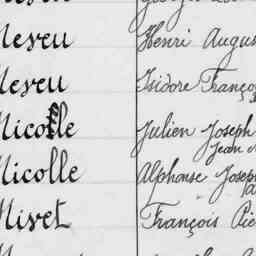 Neveu Henri Augus
Neveu Isidore Franço
Nicolle Julien Joseph
Jean
Nicolle Alphonse Josep
Nivet François Pie